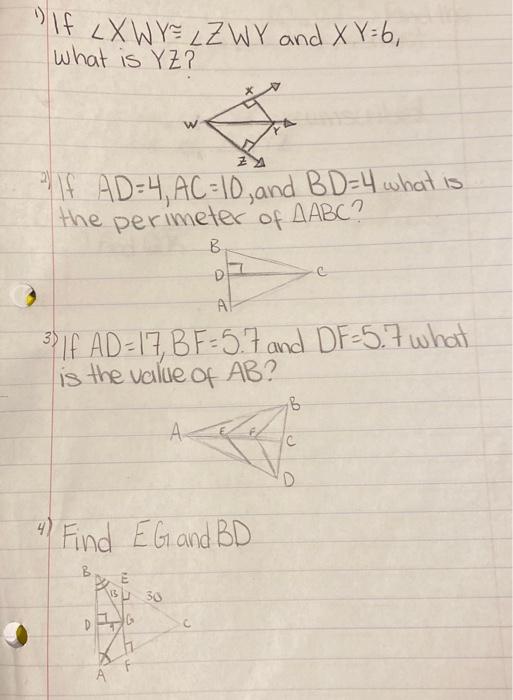 1) If ∠XWY≅∠ZWY and XY=6,
what is YZ?
X
W
Y
Z
2) If AD=4, AC=10, and BD=4 what is
the perimeter of △ABC?
B
D
C
A
3) If AD=17, BF=5.7 and DF=5.7 what
is the value of AB?
B
A E F C
D
4) Find EG and BD
B E
13 30
D G C
A F